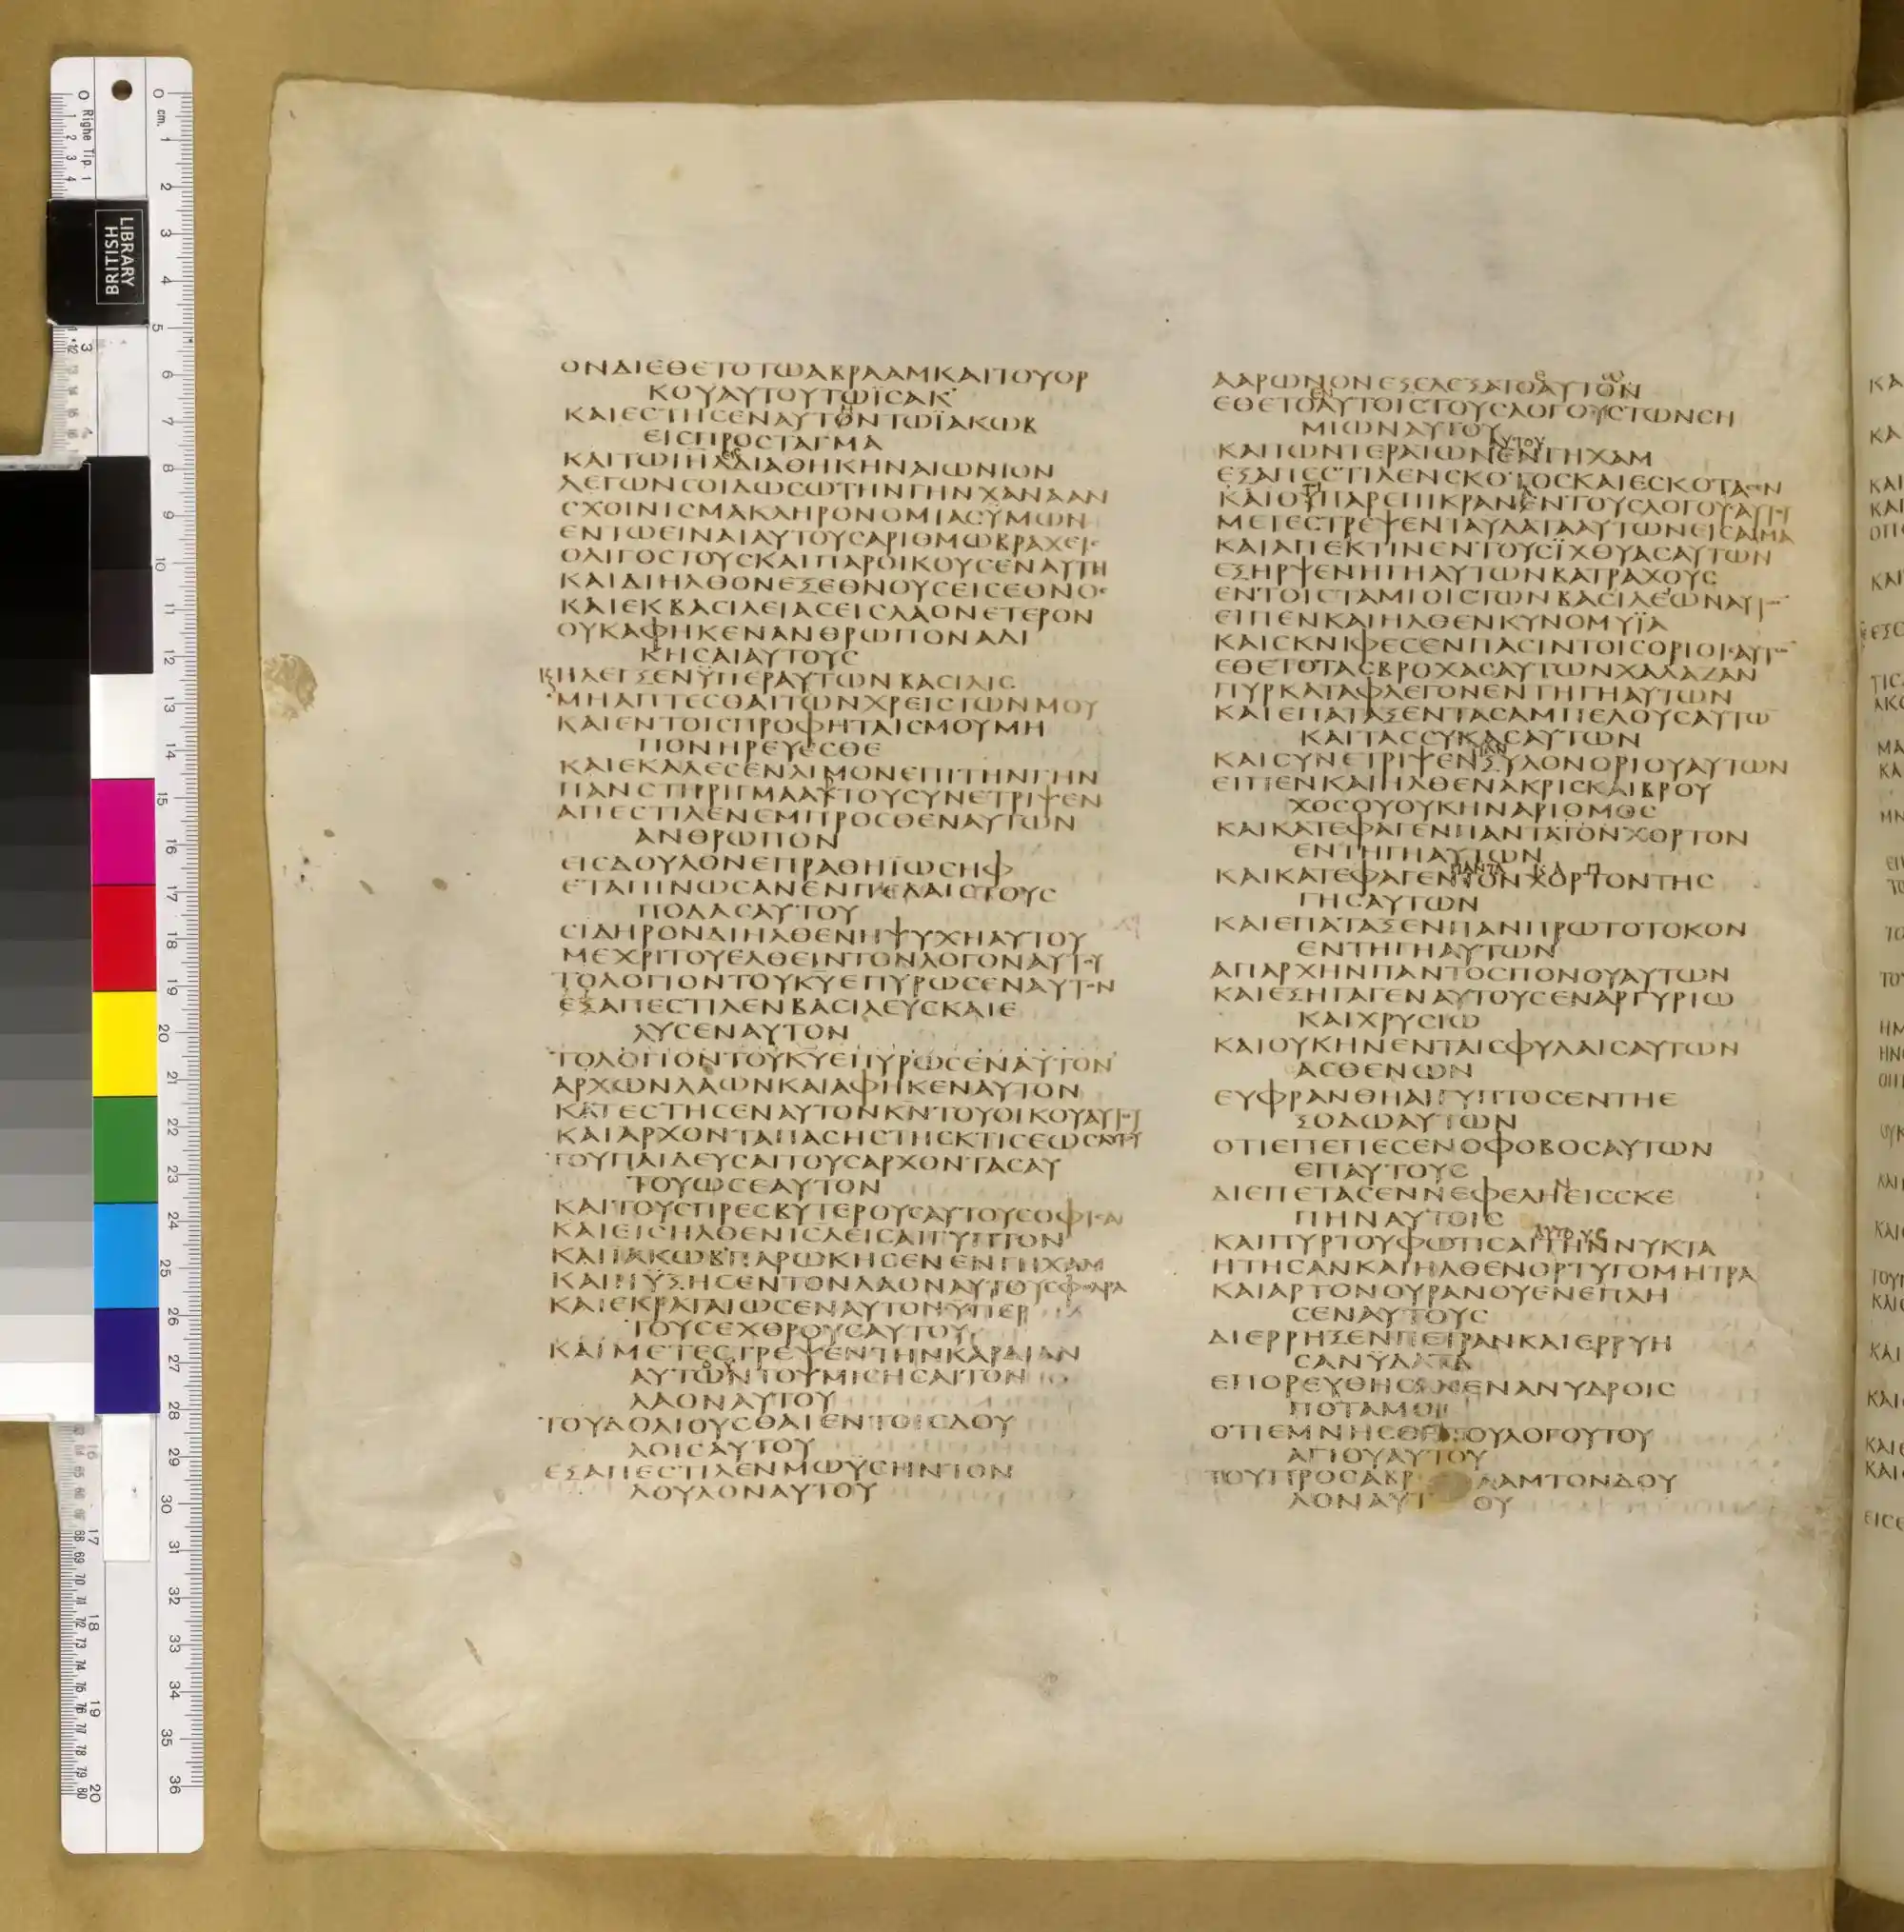 ΟΝΔΙΕΘΕΤΟΤΩΑΒΡΑΑΜΚΑΙΤΟΥΟΡ
ΚΟΥΑΥΤΟΥΤΩΪΣΑΚ
ΚΑΙΕΣΤΗΣΕΝΑΥΤΟΝΤΩΪΑΚΩΒ
ΕΙΣΠΡΟΣΤΑΓΜΑ
ΚΑΙΤΩΙΗΛΔΙΑΘΗΚΗΝΑΙΩΝΙΟΝ
ΛΕΓΩΝΣΟΙΔΩΣΩΤΗΝΓΗΝΧΑΝΑΑΝ
ΣΧΟΙΝΙΣΜΑΚΛΗΡΟΝΟΜΙΑΣΫΜΩΝ
ΕΝΤΩΕΙΝΑΙΑΥΤΟΥΣΑΡΙΘΜΩΒΡΑΧΕΙΣ
ΟΛΙΓΟΣΤΟΥΣΚΑΙΠΑΡΟΙΚΟΥΣΕΝΑΥΤΗ
ΚΑΙΔΙΗΛΘΟΝΕΞΕΘΝΟΥΣΕΙΣΕΘΝΟΣ
ΚΑΙΕΚΒΑΣΙΛΕΙΑΣΕΙΣΛΑΟΝΕΤΕΡΟΝ
ΟΥΚΑΦΗΚΕΝΑΝΘΡΩΠΟΝΑΔΙ
ΚΗΣΑΙΑΥΤΟΥΣ
ΚΗΛΕΓΞΕΝΫΠΕΡΑΥΤΩΝΒΑΣΙΛΙΣ
ΜΗΑΠΤΕΣΘΑΙΤΩΝΧΡΕΙΣΤΩΝΜΟΥ
ΚΑΙΕΝΤΟΙΣΠΡΟΦΗΤΑΙΣΜΟΥΜΗ
ΠΟΝΗΡΕΥΕΣΘΕ
ΚΑΙΕΚΑΛΕΣΕΝΛΙΜΟΝΕΠΙΤΗΝΓΗΝ
ΠΑΝΣΤΗΡΙΓΜΑΑΡΤΟΥΣΥΝΕΤΡΙΨΕΝ
ΑΠΕΣΤΙΛΕΝΕΜΠΡΟΣΘΕΝΑΥΤΩΝ
ΑΝΘΡΩΠΟΝ
ΕΙΣΔΟΥΛΟΝΕΠΡΑΘΗΪΩΣΗΦ
ΕΤΑΠΙΝΩΣΑΝΕΝΠΕΔΑΙΣΤΟΥΣ
ΠΟΔΑΣΑΥΤΟΥ
ΣΙΔΗΡΟΝΔΙΗΛΘΕΝΗΨΥΧΗΑΥΤΟΥ
ΜΕΧΡΙΤΟΥΕΛΘΕΙΝΤΟΝΛΟΓΟΝΑΥΤΟΥ
ΤΟΛΟΓΙΟΝΤΟΥΚΥΕΠΥΡΩΣΕΝΑΥΤΟΝ
ΕΞΑΠΕΣΤΙΛΕΝΒΑΣΙΛΕΥΣΚΑΙΕ
ΛΥΣΕΝΑΥΤΟΝ
ΤΟΛΟΓΙΟΝΤΟΥΚΥΕΠΥΡΩΣΕΝΑΥΤΟΝ
ΑΡΧΩΝΛΑΩΝΚΑΙΑΦΗΚΕΝΑΥΤΟΝ
ΚΑΤΕΣΤΗΣΕΝΑΥΤΟΝΚΝΤΟΥΟΙΚΟΥΑΥΤΟΥ
ΚΑΙΑΡΧΟΝΤΑΠΑΣΗΣΤΗΣΚΤΙΣΕΩΣΑΥΤΟΥ
ΤΟΥΠΑΙΔΕΥΣΑΙΤΟΥΣΑΡΧΟΝΤΑΣΑΥ
ΤΟΥΩΣΕΑΥΤΟΝ
ΚΑΙΤΟΥΣΠΡΕΣΒΥΤΕΡΟΥΣΑΥΤΟΥΣΟΦΙΣΑΙ
ΚΑΙΕΙΣΗΛΘΕΝΙΣΛΕΙΣΑΙΓΥΠΤΟΝ
ΚΑΙΪΑΚΩΒΠΑΡΩΚΗΣΕΝΕΝΓΗΧΑΜ
ΚΑΙΗΥΞΗΣΕΝΤΟΝΛΑΟΝΑΥΤΟΥΣΦΟΔΡΑ
ΚΑΙΕΚΡΑΤΑΙΩΣΕΝΑΥΤΟΝΫΠΕΡ
ΤΟΥΣΕΧΘΡΟΥΣΑΥΤΟΥ
ΚΑΙΜΕΤΕΣΤΡΕΨΕΝΤΗΝΚΑΡΔΙΑΝ
ΑΥΤΩΝΤΟΥΜΙΣΗΣΑΙΤΟΝ
ΛΑΟΝΑΥΤΟΥ
ΤΟΥΔΟΛΙΟΥΣΘΑΙΕΝΤΟΙΣΔΟΥ
ΛΟΙΣΑΥΤΟΥ
ΕΞΑΠΕΣΤΙΛΕΝΜΩΫΣΗΝΤΟΝ
ΔΟΥΛΟΝΑΥΤΟΥ
ΑΑΡΩΝΟΝΕΞΕΛΕΞΑΤΟΑΥΤΟΝ
ΕΘΕΤΟΑΥΤΟΙΣΤΟΥΣΛΟΓΟΥΣΤΩΝΣΗ
ΜΙΩΝΑΥΤΟΥ
ΑΥΤΟΥ
ΚΑΙΤΩΝΤΕΡΑΤΩΝΕΝΓΗΧΑΜ
ΕΞΑΠΕΣΤΙΛΕΝΣΚΟΤΟΣΚΑΙΕΣΚΟΤΑΣΕΝ
ΚΑΙΟΥΠΑΡΕΠΙΚΡΑΝΕΝΤΟΥΣΛΟΓΟΥΣΑΥΤΟΥ
ΜΕΤΕΣΤΡΕΨΕΝΤΑΥΔΑΤΑΑΥΤΩΝΕΙΣΑΙΜΑ
ΚΑΙΑΠΕΚΤΙΝΕΝΤΟΥΣΪΧΘΥΑΣΑΥΤΩΝ
ΕΞΗΡΨΕΝΗΓΗΑΥΤΩΝΒΑΤΡΑΧΟΥΣ
ΕΝΤΟΙΣΤΑΜΙΟΙΣΤΩΝΒΑΣΙΛΕΩΝΑΥΤΩΝ
ΕΙΠΕΝΚΑΙΗΛΘΕΝΚΥΝΟΜΥΪΑ
ΚΑΙΣΚΝΙΦΕΣΕΝΠΑΣΙΝΤΟΙΣΟΡΙΟΙΣΑΥΤΩΝ
ΕΘΕΤΟΤΑΣΒΡΟΧΑΣΑΥΤΩΝΧΑΛΑΖΑΝ
ΠΥΡΚΑΤΑΦΛΕΓΟΝΕΝΤΗΓΗΑΥΤΩΝ
ΚΑΙΕΠΑΤΑΞΕΝΤΑΣΑΜΠΕΛΟΥΣΑΥΤΩ
ΚΑΙΤΑΣΣΥΚΑΣΑΥΤΩΝ
ΠΑΝ
ΚΑΙΣΥΝΕΤΡΙΨΕΝΞΥΛΟΝΟΡΙΟΥΑΥΤΩΝ
ΕΙΠΕΝΚΑΙΗΛΘΕΝΑΚΡΙΣΚΑΙΒΡΟΥ
ΧΟΣΟΥΟΥΚΗΝΑΡΙΘΜΟΣ
ΚΑΙΚΑΤΕΦΑΓΕΝΠΑΝΤΑΤΟΝΧΟΡΤΟΝ
ΕΝΤΗΓΗΑΥΤΩΝ
ΠΑΝΤΑ
ΚΑΙΚΑΤΕΦΑΓΕΝΤΟΝΧΟΡΤΟΝΤΗΣ
ΓΗΣΑΥΤΩΝ
ΚΑΙΕΠΑΤΑΞΕΝΠΑΝΠΡΩΤΟΤΟΚΟΝ
ΕΝΤΗΓΗΑΥΤΩΝ
ΑΠΑΡΧΗΝΠΑΝΤΟΣΠΟΝΟΥΑΥΤΩΝ
ΚΑΙΕΞΗΓΑΓΕΝΑΥΤΟΥΣΕΝΑΡΓΥΡΙΩ
ΚΑΙΧΡΥΣΙΩ
ΚΑΙΟΥΚΗΝΕΝΤΑΙΣΦΥΛΑΙΣΑΥΤΩΝ
ΑΣΘΕΝΩΝ
ΕΥΦΡΑΝΘΗΑΙΓΥΠΤΟΣΕΝΤΗΕ
ΞΟΔΩΑΥΤΩΝ
ΟΤΙΕΠΕΠΕΣΕΝΟΦΟΒΟΣΑΥΤΩΝ
ΕΠΑΥΤΟΥΣ
ΔΙΕΠΕΤΑΣΕΝΝΕΦΕΛΗΕΙΣΣΚΕ
ΠΗΝΑΥΤΟΙΣ
ΑΥΤΟΥΣ
ΚΑΙΠΥΡΤΟΥΦΩΤΙΣΑΙΤΗΝΝΥΚΤΑ
ΗΤΗΣΑΝΚΑΙΗΛΘΕΝΟΡΤΥΓΟΜΗΤΡΑ
ΚΑΙΑΡΤΟΝΟΥΡΑΝΟΥΕΝΕΠΛΗ
ΣΕΝΑΥΤΟΥΣ
ΔΙΕΡΡΗΞΕΝΠΕΤΡΑΝΚΑΙΕΡΡΥΗ
ΣΑΝΫΔΑΤΑ
ΕΠΟΡΕΥΘΗΣΑΝΕΝΑΝΥΔΡΟΙΣ
ΠΟΤΑΜΟΙ
ΟΤΙΕΜΝΗΣΘΗΤΟΥΛΟΓΟΥΤΟΥ
ΑΓΙΟΥΑΥΤΟΥ
ΤΟΥΠΡΟΣΑΒΡΑΑΜΤΟΝΔΟΥ
ΛΟΝΑΥΤΟΥ
LIBRARY
BRITISH